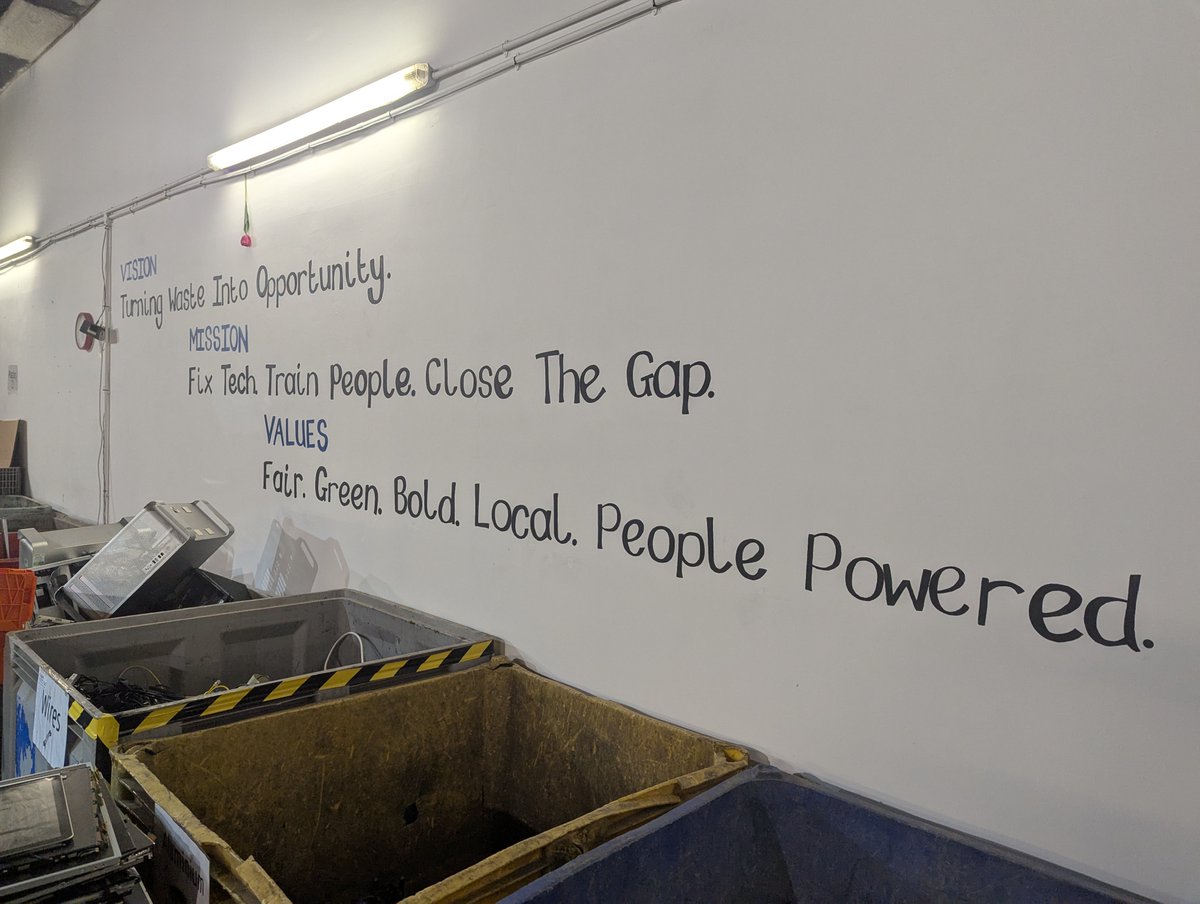 VISION
Turning Waste Into Opportunity.
MISSION
Fix Tech. Train People. Close The Gap.
VALUES
Fair. Green. Bold. Local. People Powered.
Wires